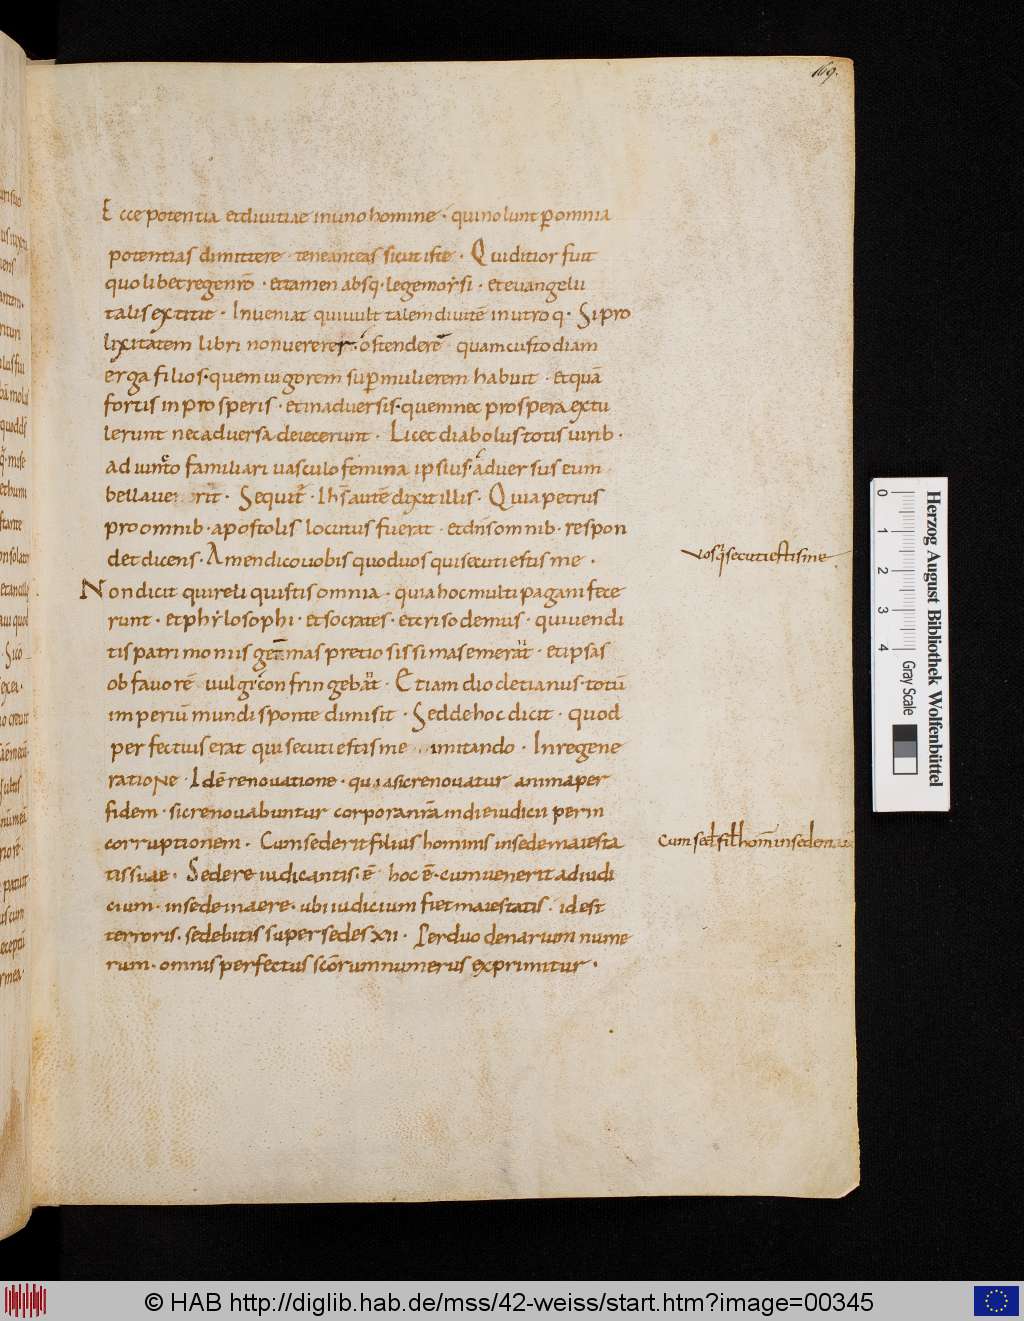 169.
Ecce potentia et diuitiae in uno homine · qui nolunt ꝑ omnia
potentias dimittere · teneant eas sicut iste · Qui ditior fuit
quolibet regenrō · et tamen absq· lege moẏsi · et euangelii
talis extitit · Inueniat qui uult talem diuitē in utroq· Si pro
lixitatem libri non uererer · ostenderē quam custodiam
erga filios · quem uigorem suꝑ mulierem habuit · et quā
fortis in prosperis · et in aduersis · quem nec prospera extu
lerunt nec aduersa deiecerunt · Licet diabolus totis uirib·
familiari uasculo femina ipsius · aduersus eum
Sequit̄ · Ihs̄ autē dixit illis · Quia petrus
pro omnib· apostolis locutus fuerat · et dn̄s omnib· respon
det dicens · Amen dico uobis quod uos qui secuti estis me ·
uos q̄ secuti estis me
Non dicit qui reliquistis omnia · quia hoc multi pagani fece
runt · et phẏlosophi · et socrates · et crisodemus · qui uendi
tis patrimoniis gemmas pretiosissimas emerant · et ipsas
ob fauorē uulgi confringebant · Etiam diocletianus · totū
imperiū mundi sponte dimisit · Sed de hoc dicit · quod
perfectius erat qui secuti estis me imitando · In regene
ratione · Idē renouatione · quia sic renouatur anima per
fidem · sic renouabuntur corpora nr̄a in die iudicii per in
corruptionem · Cum sederit filius hominis in sede maiesta
Cum sed fil hom̄ in sede mai
tis suae · Sedere iudicantis · ē hoc ē · cum uenerit ad iudi
cium · in sede in aere · ubi iudicium fiet maiestatis · id est
terroris · sedebitis super sedes xii · Per duodenarium nume
rum · omnis perfectus scōrum numerus exprimitur ·
0 1 2 3 4
Herzog August Bibliothek Wolfenbüttel
Gray Scale
© HAB http://diglib.hab.de/mss/42-weiss/start.htm?image=00345